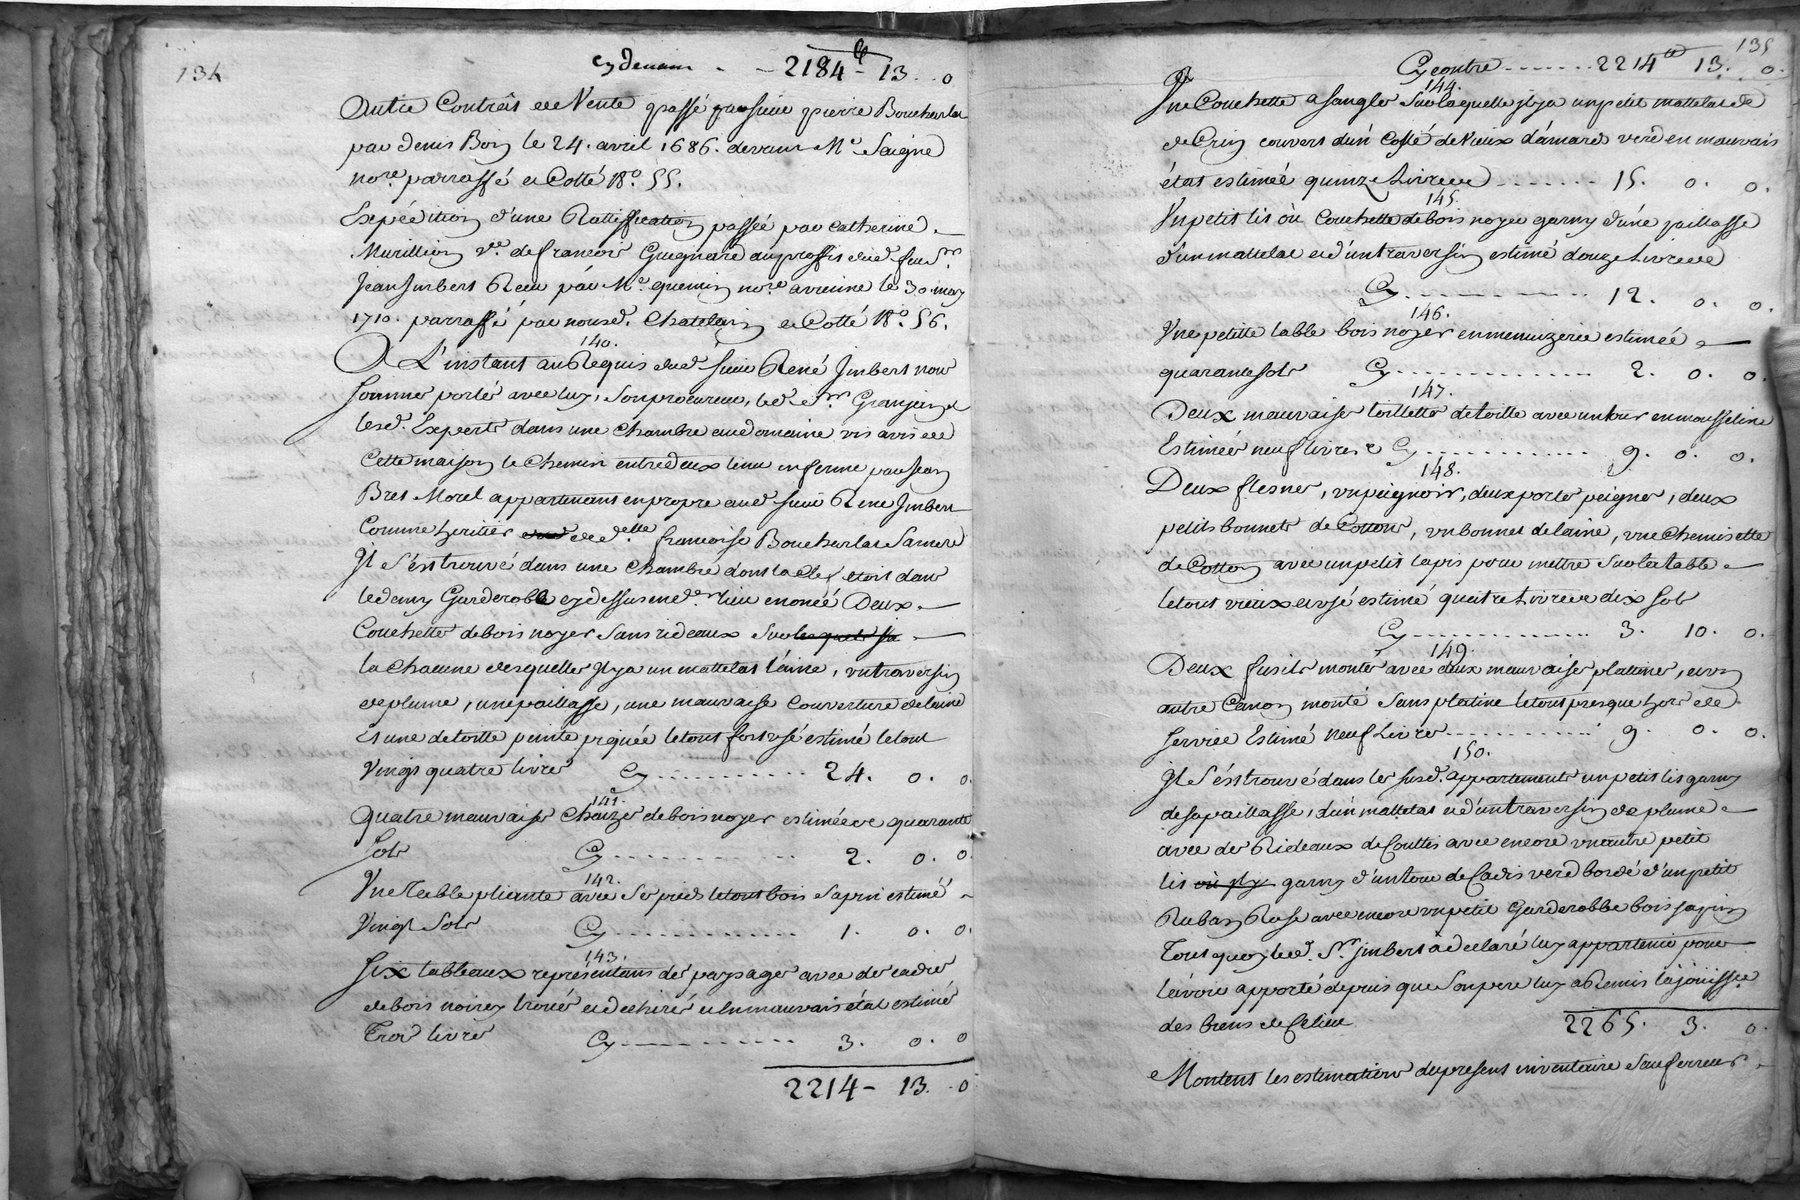 134
Cy devant - - 2184 lt - 13 . 0
Autre Contrât de Vente passé par sieur pierre Boucharlat
par denis Boin le 24. avril 1686. devant Me Saigne
nore. parraffé et Cotté No. 55.
Expédition d'une Rattiffication passée par catherine
Murillion ve. de francois Guignard au proffit dud. feu Sr.
Jean Jmbert Receu pár Me. quemin nore. a vienne le 30 may
1710. parraffé par nousd. Chatelain et Cotté No. 56.
140.
A L'instant au Requis dud. sieur René Jmbert nous
sommes portés avec luy, son procureur, led. Sr. Granjean et
lesd. Experts dans une chambre au domaine vis avis de
Cette maison le chemin entredeux tenu en ferme par Jean
Bret Morel appartenant en propre aud. sieur Rene Jmbert
Comme heritier de d. elle francoise Boucharlat Sa mere
Jl S'est trouvé dans une chambre dont la clef étoit dans
le demy Garderobbe cy dessus med. lieu enoncéé Deux
Couchettes de bois noyer sans rideaux sur lesquels sa
la chacune desquelles Jl y a un mattelas láine, un traversin
de plume, une paillasse, une mauvaise Couverture de laine
Et une de toille peinte piquée le tout fort usé estimé le tout
Vingt quatre livres Cy ........... 24. 0. 0.
141.
quatre mauvaises chaizes de bois noyer estiméés quarante
Sols Cy ........... 2. 0. 0
142.
Vne Table pliante avec Ses pieds le tout bois Sapin estimé
Vingt Sols Cy ........... 1. 0. 0.
143.
Six tableaux representans des paysages avec des cadres
de bois noircy troués et dechirés et en mauvais état estimé
Trois livres Cy ........... 3. 0. 0
2214 - 13. 0
135
Cy contre ....... 2214 lt 13. 0.
144.
Une Couchette a sangles Sur laquelle jl y a un petit mattelas de
de Crin couvert d'un Costé de Vieux damard verd en mauvais
état estiméé quinze Livres ....... 15. 0. 0.
145.
Vn petit lit où Couchette de bois noyer garny d'une paillasse
d'un mattelat et d'un traversin estimé douze Livres
Cy ........... 12. 0. 0.
146.
Vne petitte table bois noyer en menuizerie estiméé
quarante sols Cy ........... 2. 0. 0.
147.
Deux mauvaises toillettes de toille avec un tour en mousseline
Estiméés neuf livres Cy ........... 9. 0. 0.
148.
Deux flesnes, un peignoir, deux portes peignes, deux
petits bonnets de Cotton, un bonnet de laine, vne chemisette
de Cotton avec un petit tapis pour mettre Sur la table
le tout vieux et usé estimé quatre Livres dix Sols
Cy ........... 3. 10. 0.
149.
Deux fusils montés avec deux mauvaises plattines, et un
autre Canon monté Sans platine le tout presque hors de
Service Estimé neuf Livres ........... 9. 0. 0.
150.
Jl S'est trouvé dans les susd. appartements un petit lit garny
de sa paillasse, d'un mattelas et d'un traversin de plume
avec des Rideaux de Couttis avec encore un autre petit
lit où jl y garny d'un tour de Cadis verd bordé d'un petit
Ruban Rose avec encore un petit Garderobbe bois sapin
Tout quoy led. Sr. Jmbert â declaré luy appartenir pour
l'avoir apporté depuis que Son pere luy a Remis la joüissce
des biens de Ce lieu
2265. 3. 0.
Montent les estimations du present inventaire Sauf erreur